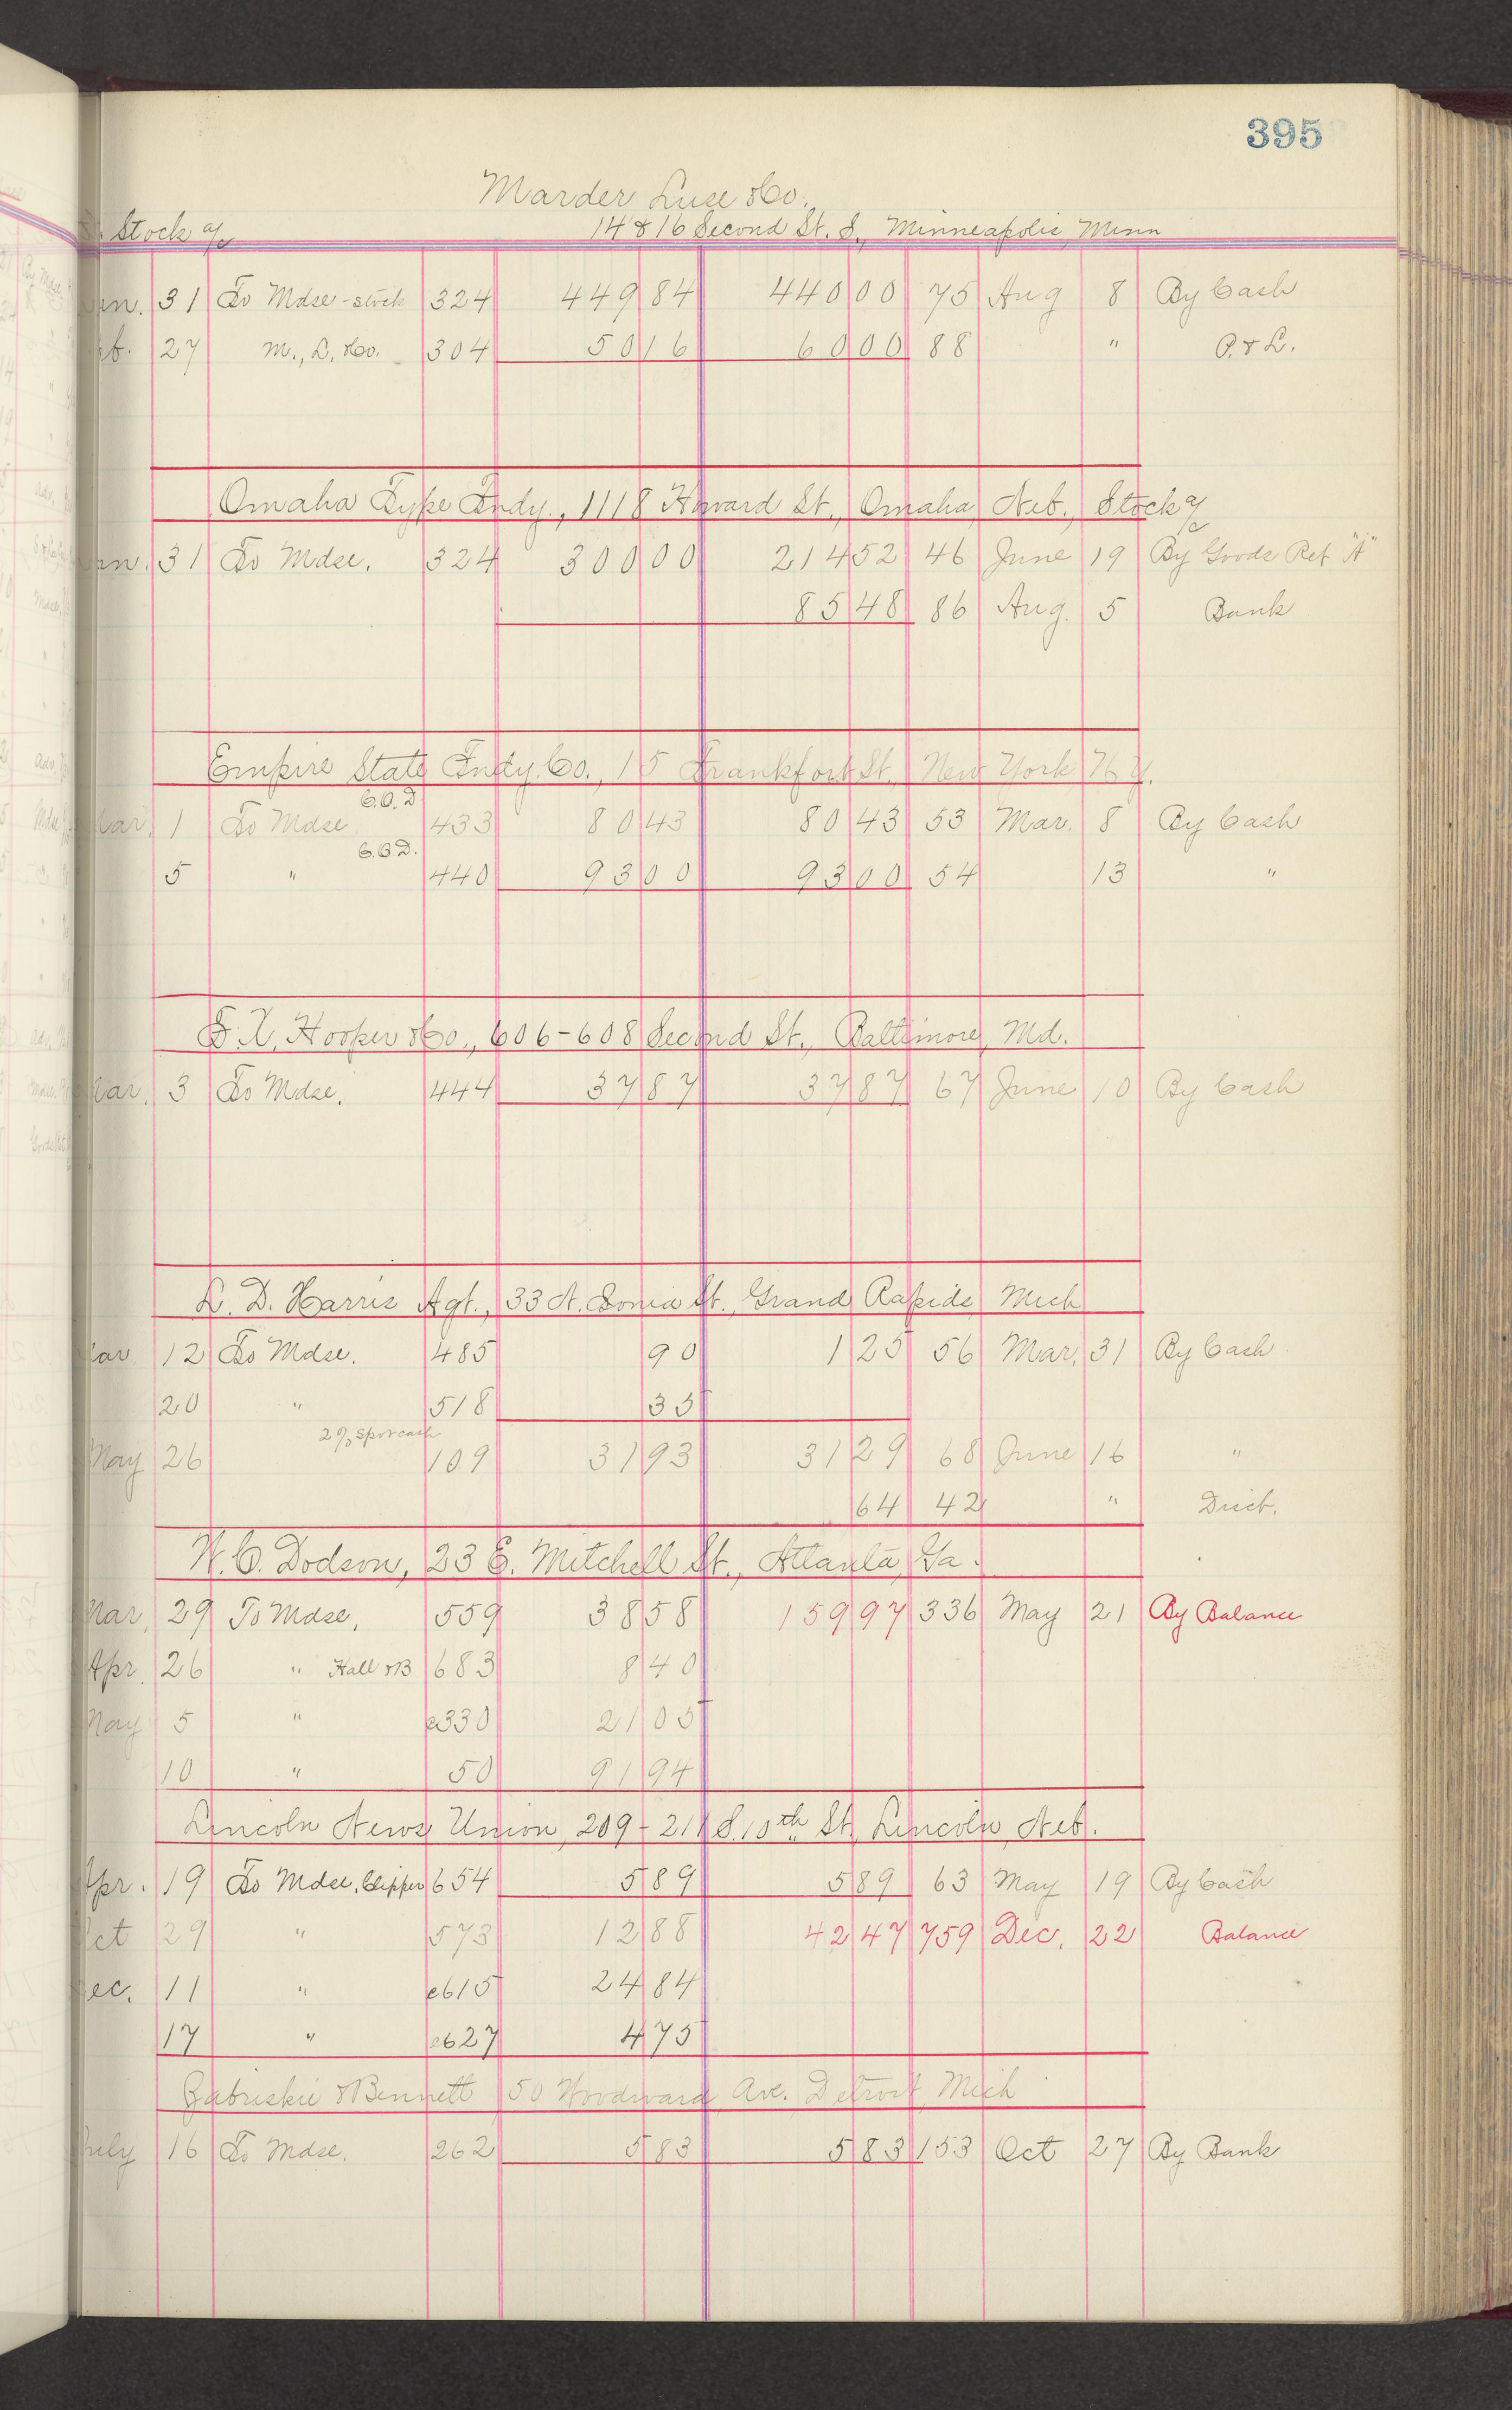 395
Marder Luse & Co.
Stock a/c 14 & 16 Second St. S., Minneapolis Minn
an. 31 To Mdse - stock 324 449 84 440 00 75 Aug 8 By Cash
b. 27 M., L. & Co. 304 50 16 60 00 88 " P. & L.
Omaha Type Fndy., 1118 Howard St., Omaha Neb., Stock a/c
an. 31 To Mdse. 324 300 00 214 52 46 June 19 By Goods Ret "A"
85 48 86 Aug. 5 Bank
Empire State Fndy. Co., 15 Frankfort St., New York N.Y.
C.O.D.
Mar. 1 To Mdse 433 80 43 80 43 53 Mar. 8 By Cash
C.O.D.
5 " 440 93 00 93 00 54 13 "
F. X. Hooper & Co., 606-608 Second St., Baltimore, Md.
Mar. 3 To Mdse. 444 37 87 37 87 67 June 10 By Cash
L. D. Harris Agt., 33 N. Ionia St. Grand Rapids Mich
ar 12 To Mdse. 485 90 1 25 56 Mar. 31 By Cash
20 " 518 35
2% spot cash
May 26 109 31 93 31 29 68 June 16 "
64 42 " Disct.
W. C. Dodson, 23 E. Mitchell St., Atlanta, Ga.
Mar. 29 To Mdse, 559 38 58 159 97 336 May 21 By Balance
Apr. 26 " Hall & B 683 8 40
May 5 " e330 21 05
10 " 50 91 94
Lincoln News Union, 209-211 S. 10th St, Lincoln, Neb.
Apr. 19 To Mdse, Clipper 654 5 89 5 89 63 May 19 By Cash
ct 29 " 573 12 88 42 47 759 Dec. 22 Balance
ec. 11 " e615 24 84
17 " e627 4 75
Zabriskie & Bennett 50 Woodward Ave. Detroit Mich
July 16 To Mdse. 262 5 83 5 83 153 Oct 27 By Bank